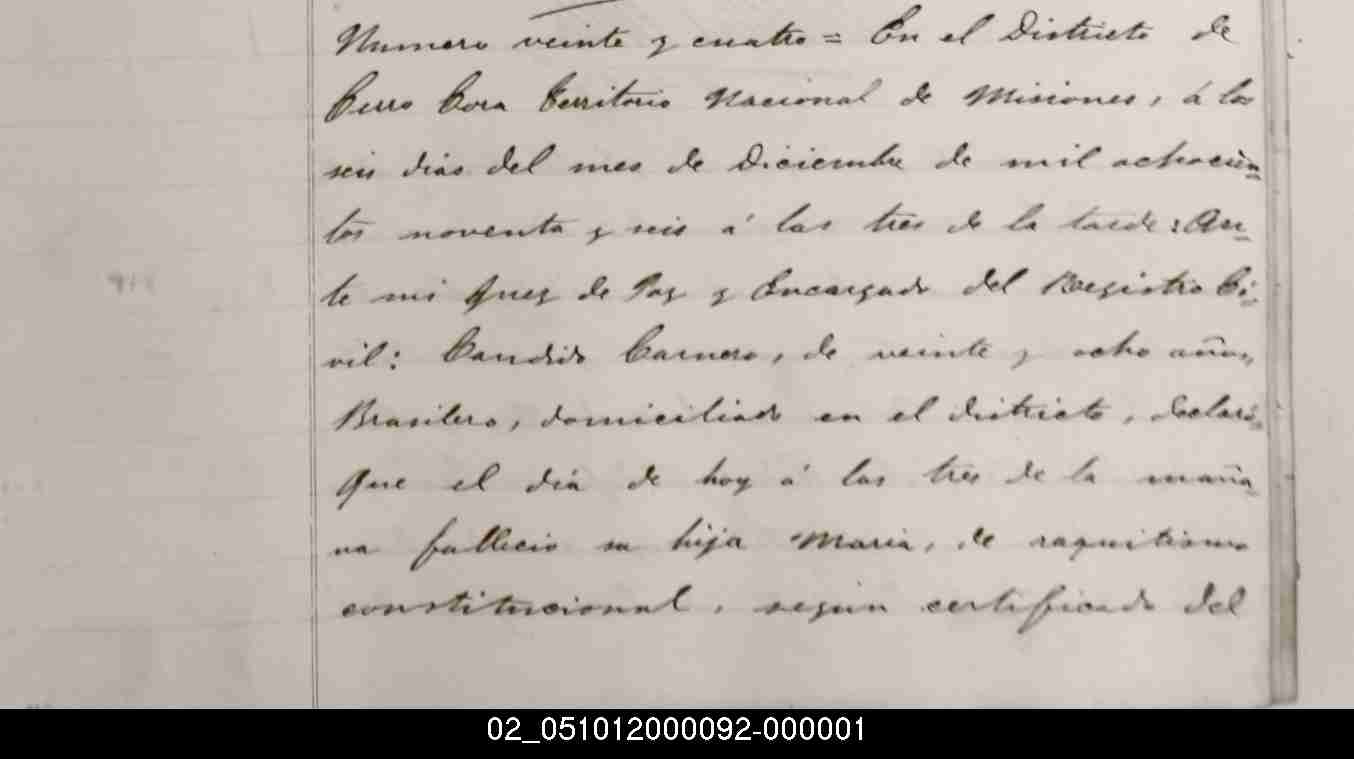 Numero veinte y cuatro = En el Districto de
Cerro Cora Territorio Nacional de Misiones, á los
seis dias del mes de Diciembre de mil ochocien=
tos noventa y seis á las tres de la tarde: An=
te mi Juez de Paz y Encargado del Registro Ci=
vil: Candido Carnero, de veinte y ocho años,
Brasilero, domiciliado en el districto, declaró,
Que el dia de hoy á las tres de la maña
na fallecio su hija Maria, de raquitismo
constitucional, segun certificado del
02_051012000092-000001